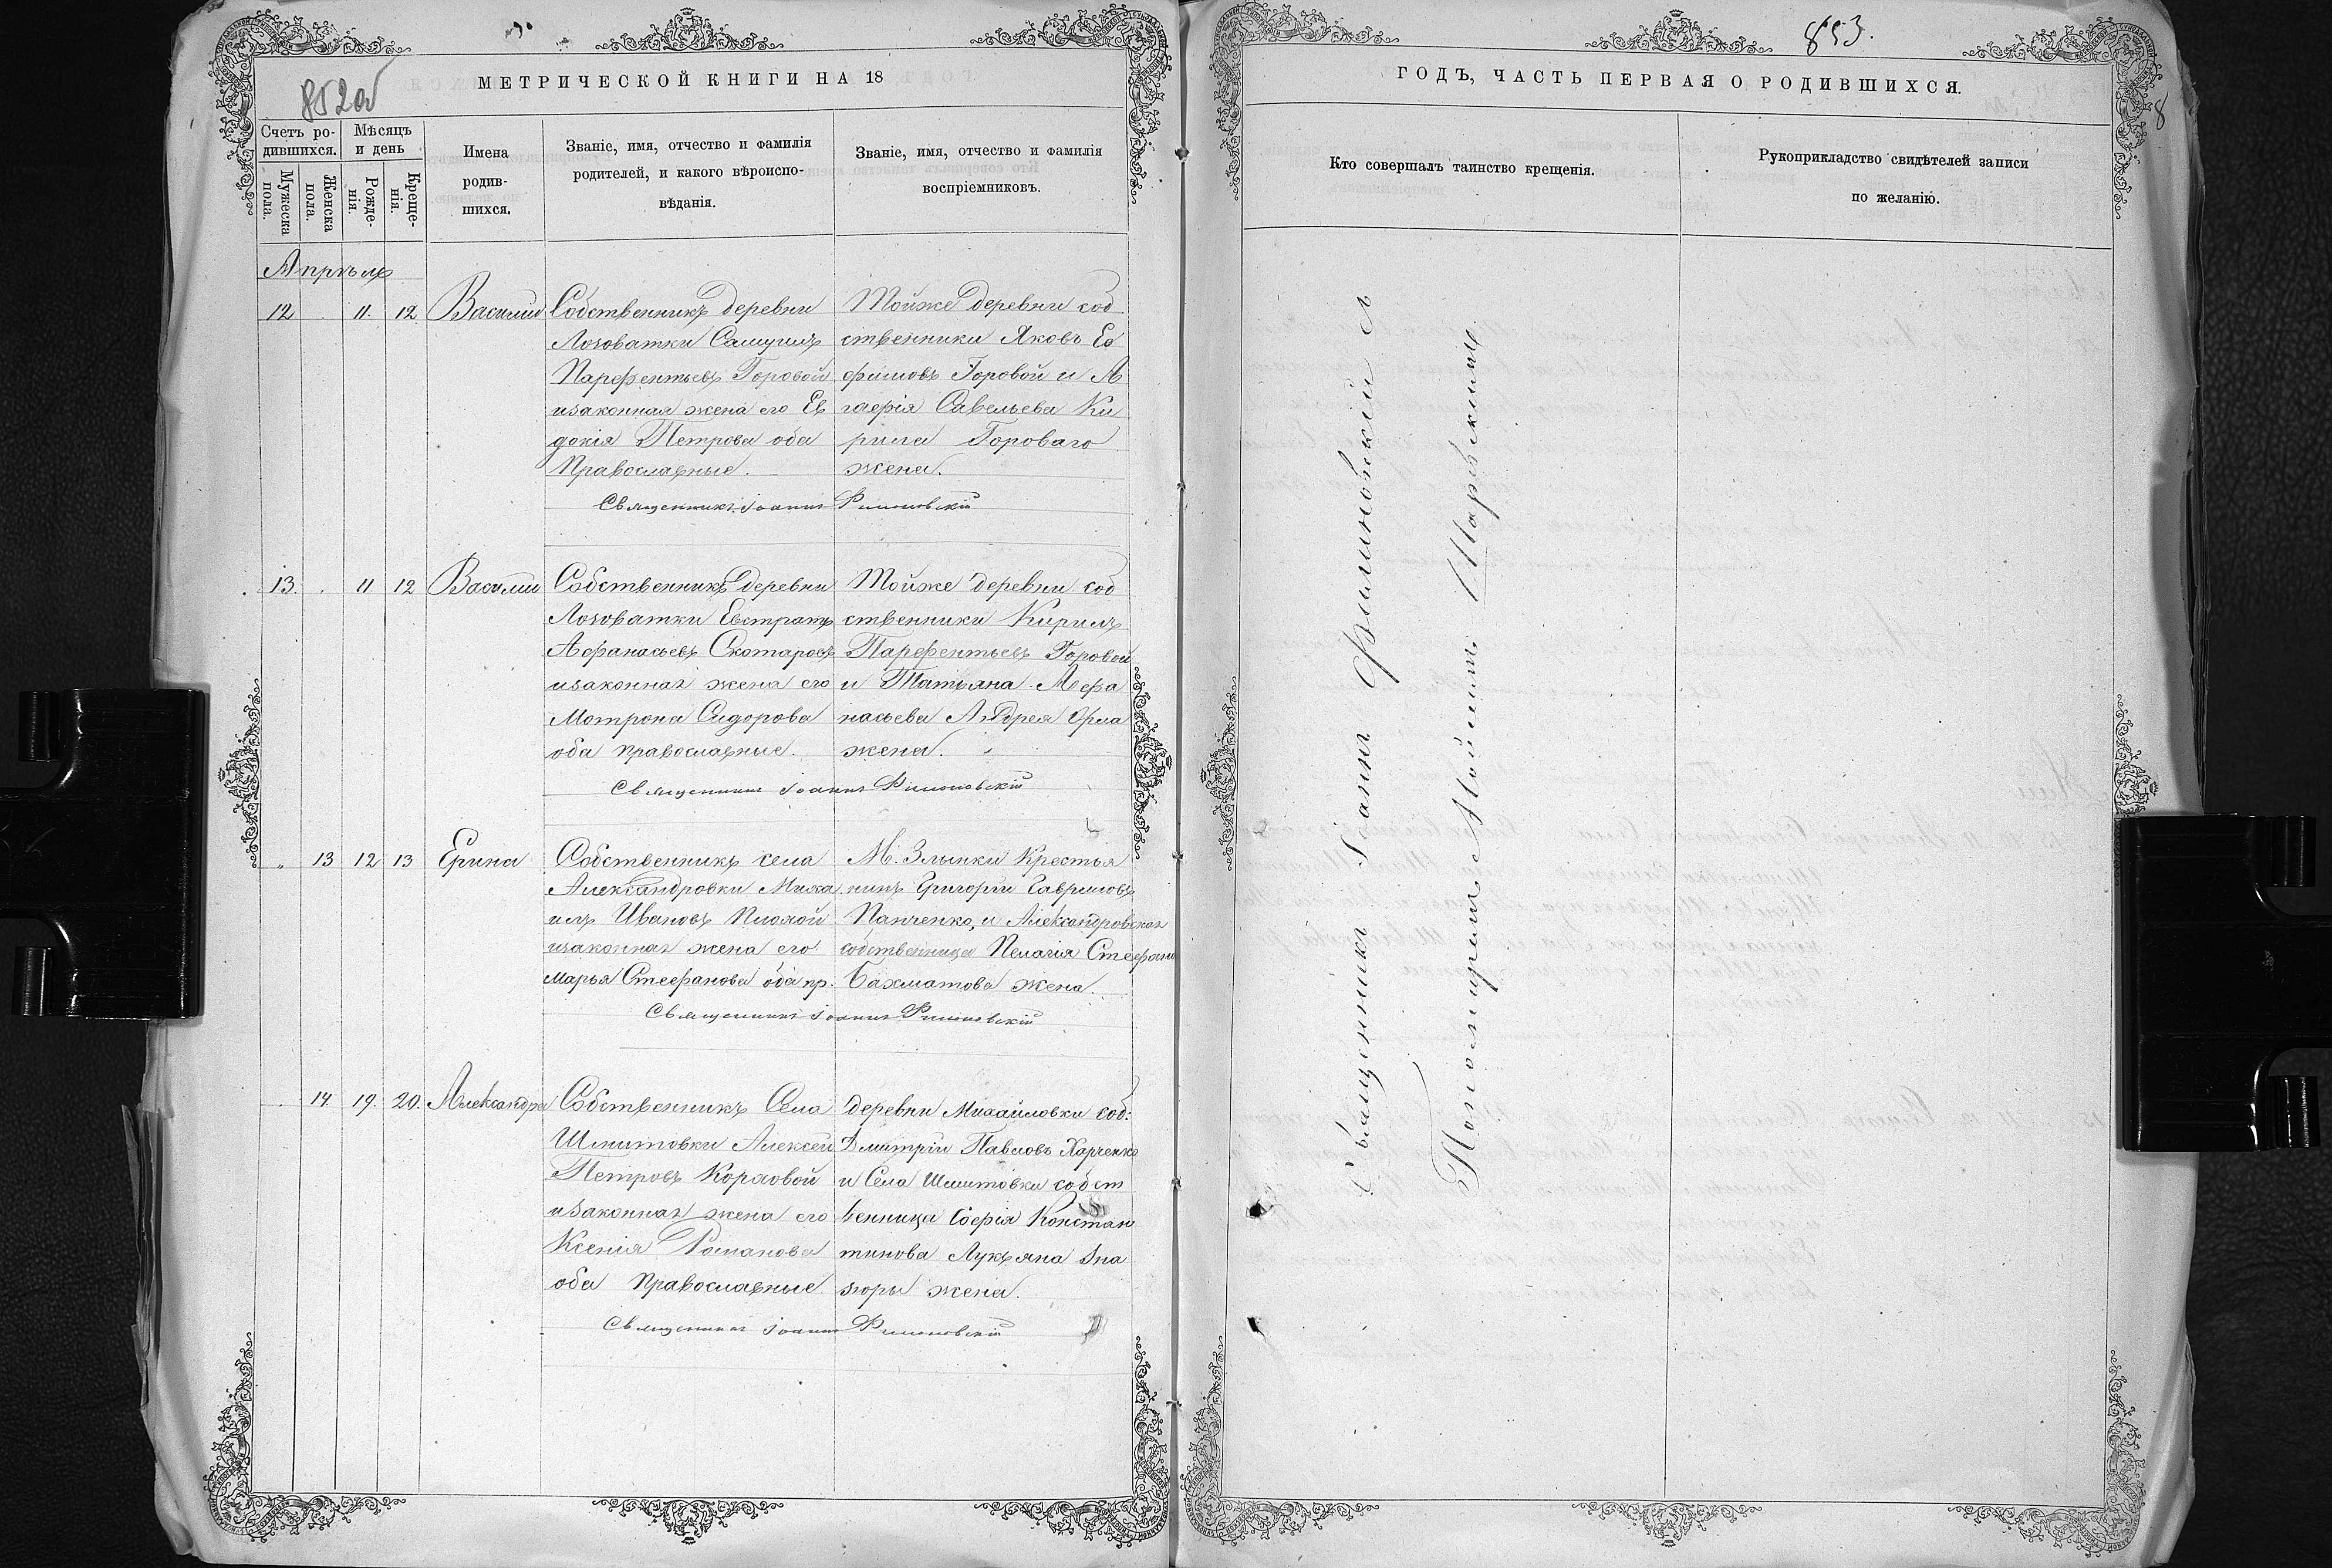 852об
МЕТРИЧЕСКОЙ КНИГИ НА 18
Счетъ ро-
дившихся.
Мѣсяцъ
и день
Мужеска
пола.
Женска
пола.
Рожде-
нія.
Креще-
нія.
Имена
родив-
шихся.
Званіе, имя, отчество и фамилія
родителей, и какого вѣроиспо-
вѣданія.
Званіе, имя, отчество и фамилія
воспріемниковъ.
Апрѣль
12 11. 12 Василій
Собственникъ деревни
Лозоватки Самуилъ
Парфентьевъ Горовой
изаконная жена его Ев
докія Петрова оба
Православные.
Тойже деревни соб
ственники Яковъ Ео
фимовъ Горовой и А
гафія Савельева Ки
рила Гороваго
жена.
Священникъ Іоаннъ Филиповскій
13. 11 12 Василій
Собственникъ деревни
Лозоватки Евстратъ
Афанасьевъ Скотаровъ
изаконная жена его
Мотрона Сидорова
оба православные.
Тойже деревни соб
ственники Кирилъ
Парфентьевъ Горовой
и Татьяна Афа
насьева Андрея Орла
жена.
Священникъ Іоаннъ Филиповскій
13 12 13 Ерина
Собственникъ села
Александровки Миха
илъ Ивановъ Плохой
изаконная жена его
Марья Стефанова оба пр.
М. Злынки Крестья
нинъ Григорій Гавриловъ
Панченко, и Александровская
собственница Пелагія Стефани
Бахматова жена.
Священникъ Іоаннъ Филиповскій
14. 19. 20. Александра
Собственникъ Села
Шмитовки Алексей
Петровъ Корховой
изаконная жена его
Ксенія Романова
оба Православные
деревни Михайловки соб:
Дмитрій Павловъ Харченко
и Села Шмитовки собст
венница Софія Констан
тинова Лукьяна Зна
хоры жена.
Священникъ Іоаннъ Филиповскій
853.
ГОДЪ, ЧАСТЬ ПЕРВАЯ О РОДИВШИХСЯ.
Кто совершалъ таинство крещенія.
Рукоприкладство свидѣтелей записи
по желанію.
Священникъ Іоаннъ Филиповскій с
Пономаремъ